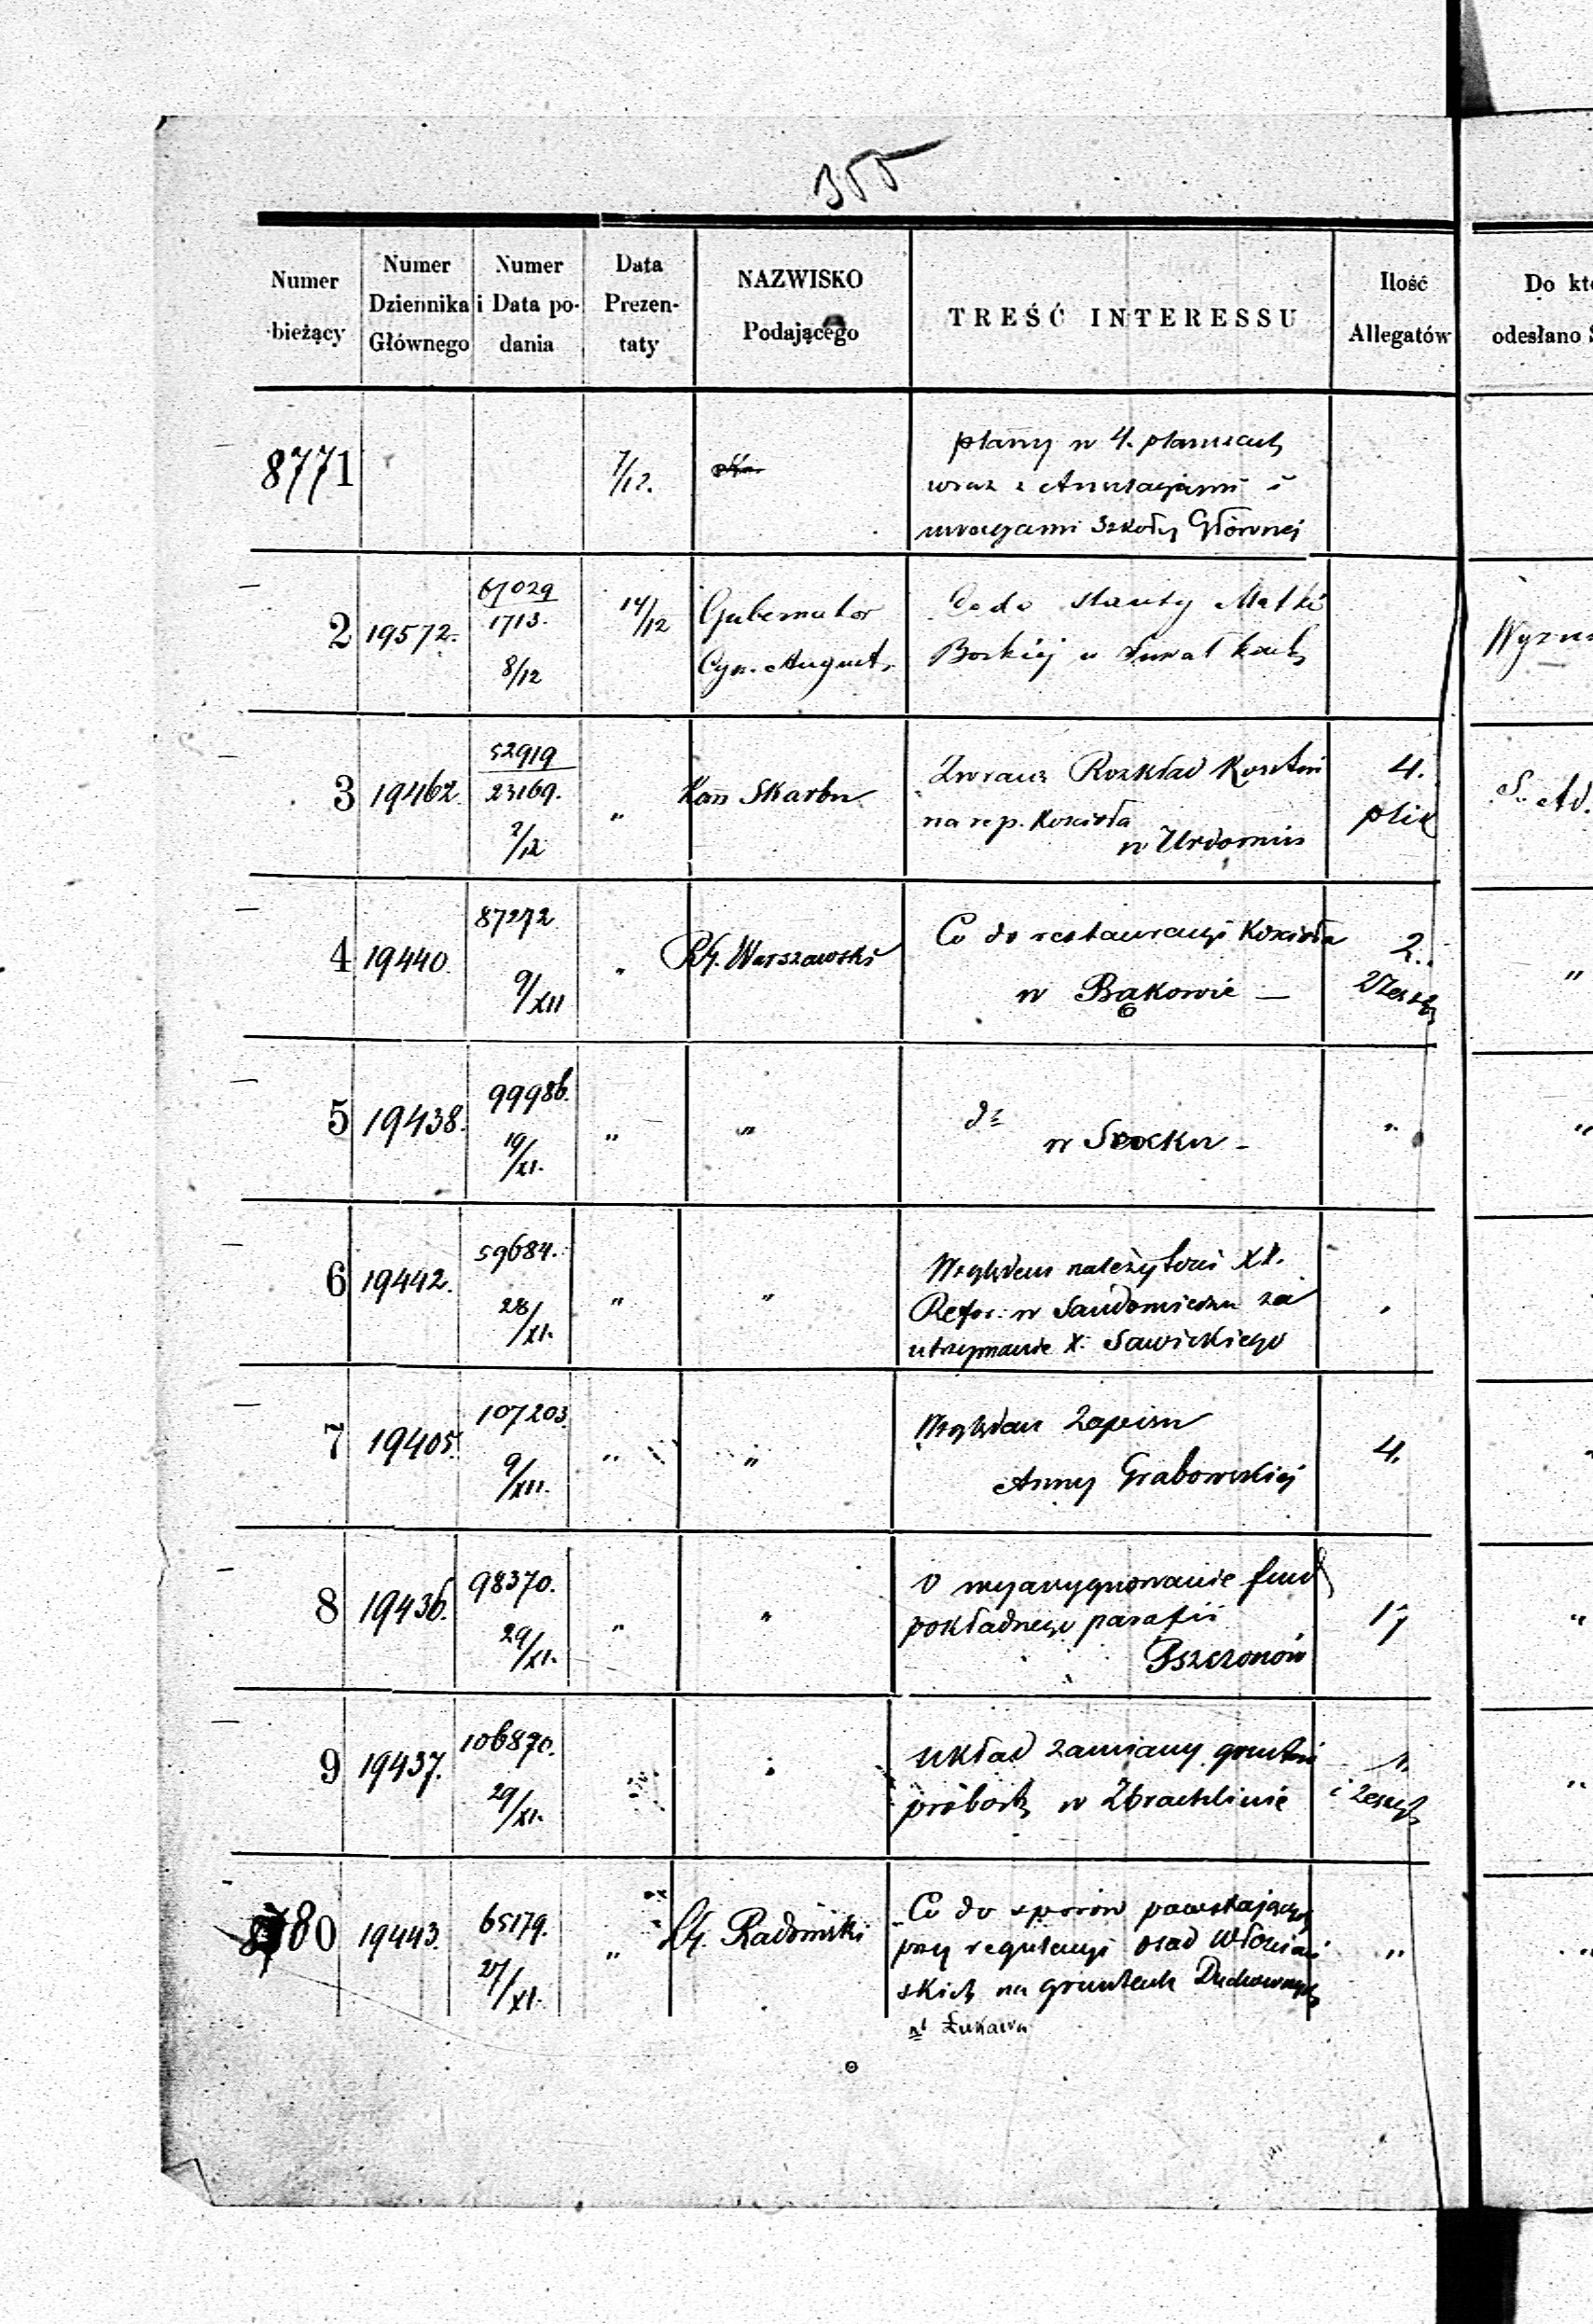 355
Numer bieżący
Numer Dziennika Głównego
Numer i Data podania
Data Prezentaty
NAZWISKO Podającego
TREŚĆ INTERESSU
Ilość Allegatów
Do kt
odesłano S
8771 7/12.
plany w 4. planicach
wraz z i
uwagami Szkoły Głównej
2 19572. 61029 1713. 8/12 14/12
Gubernator
August.
Co do statuty Matki
Boskiej w
3 19462. 52919 23169. 2/12 "
Kom Skarbu
Zwraca Rozkład Kosztów
na rep. Kościoła
w Urdomin
4.
plik
S. Ad.
4 19440. 87272 9/XII "
Rg. Warszawski
Co do restauracyi Kościoła
w Bąkowie —
2.
"
5 19438. 99986. 19/XI. " "
do
w Srocku -
"
"
6 19442. 59684. 28/XI. " "
Względem należytości XX.
Refor. w Sandomierzu za
utrzymanie X. Sawickiego
"
7 19405. 107203. 9/XII. " "
Względem Zapisu
Anny Grabowskiej
4.
8 19436. 98370. 29/XI. " "
O wyasygnowanie fund
pokładnego parafii
Pszczonów
17
"
9 19437. 106870. 29/XI. "
układ zamiany gruntów
probosz w Zbrachlinie
i Zeszyt
"
8780 19443. 65179. 27/XI. "
Rg. Radomski
Co do sporów powstających
przy regulacyi osad Włościań
skich na gruntach Duchownych
w Łukawa
"
"